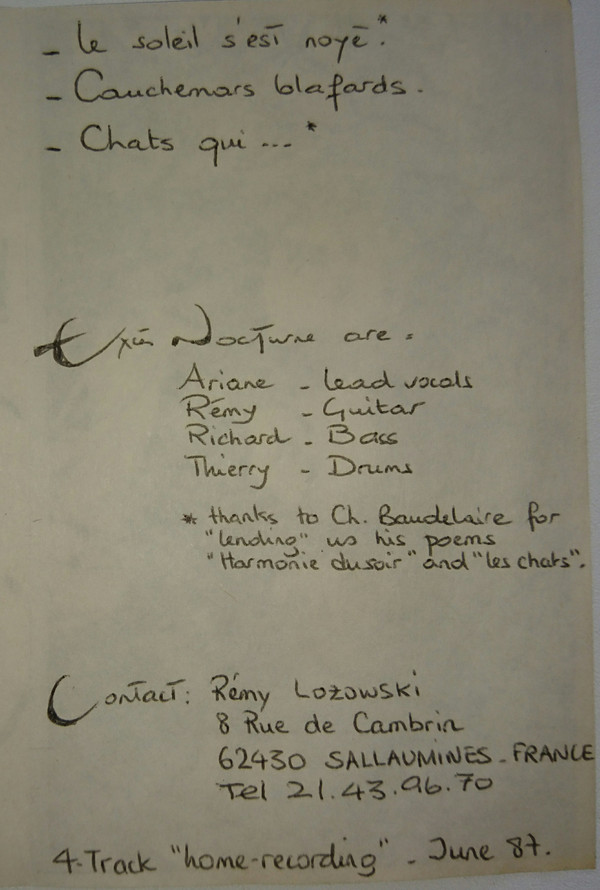 - Le soleil s'est noyé.*
- Cauchemars blafards.
- Chats qui...*
Exis Nocturne are:
Ariane - Lead vocals
Rémy - Guitar
Richard - Bass
Thierry - Drums
* thanks to Ch. Baudelaire for
"lending" us his poems
"Harmonie du soir" and "les chats".
Contact: Rémy Lozowski
8 Rue de Cambrin
62430 SALLAUMINES - FRANCE
Tel 21.43.96.70
4-Track "home-recording" - June 87.